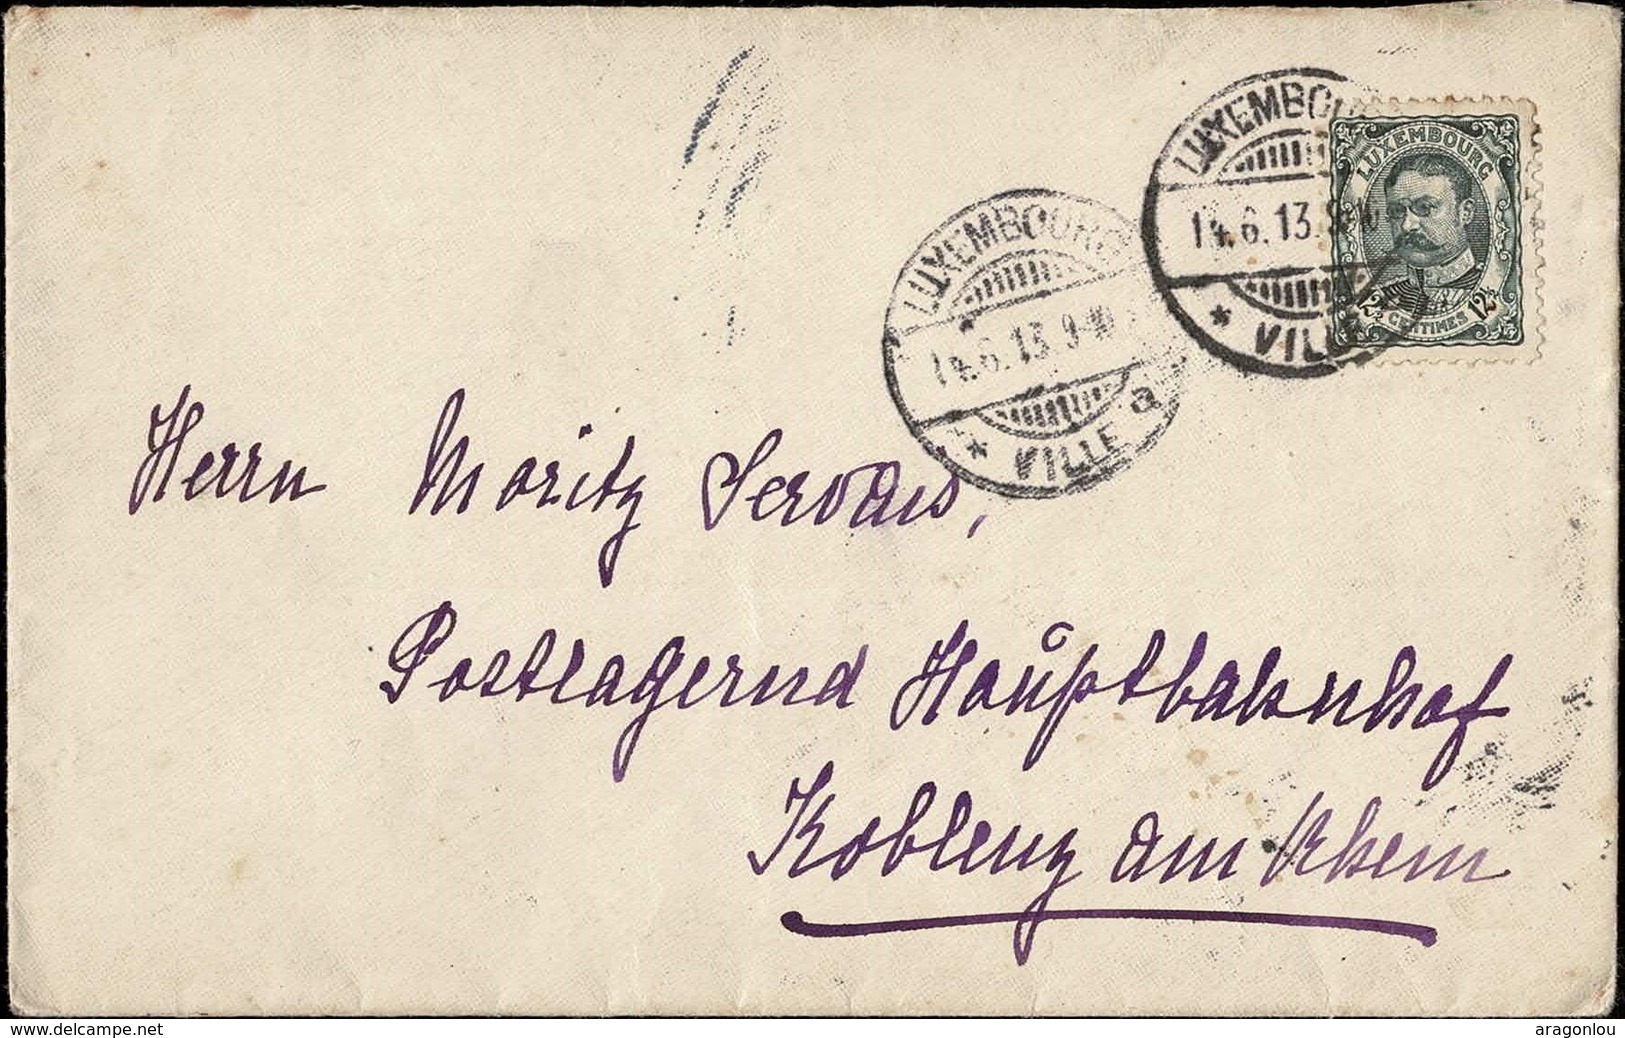 LUXEMBOURG
14.6.13.9-10
* VILLE
LUXEMBOURG
12½ CENTIMES 12½
LUXEMBOURG
14.6.13.9-10
* VILLE a
Herrn Moritz Servais,
Postlagernd Hauptbahnhof
Koblenz am Rhein
www.delcampe.net
aragonlou